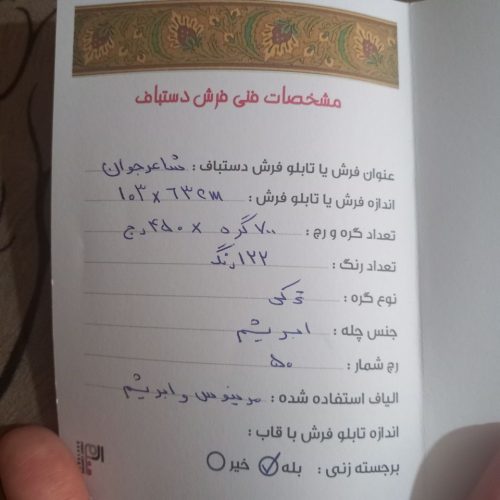 مشخصات فنی فرش دستباف
عنوان فرش یا تابلو فرش دستباف : شاعر جوان
اندازه فرش یا تابلو فرش : ۱۰۳ x ۶۳ cm
تعداد گره و رج : ۷۰۰ گره x ۴۵۰ رج
تعداد رنگ : ۱۲۲ رنگ
نوع گره : ترکی
جنس چله : ابریشم
رج شمار : ۵۰
الیاف استفاده شده : مرینوس و ابریشم
اندازه تابلو فرش با قاب :
برجسته زنی : بله خیر